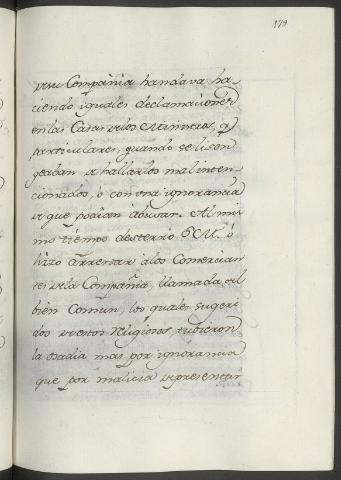 179
desu Compañia handava ha-
ciendo iguales declamaciones
en las Casas delos Ministros, y
particulares, quando se lison
geaban de hallarlos mal inten-
cionados, ò con una ignorancia
de que podian abusar. Al mis
mo tiempo desterrò S. M. ò
hizo arrestar àlos Comercian
tes dela Compañia, llamada del
bien Comun, los quales sugeri
dos destos Religiosos tubieron
la osadia mas por ignorancia
que por malicia representar